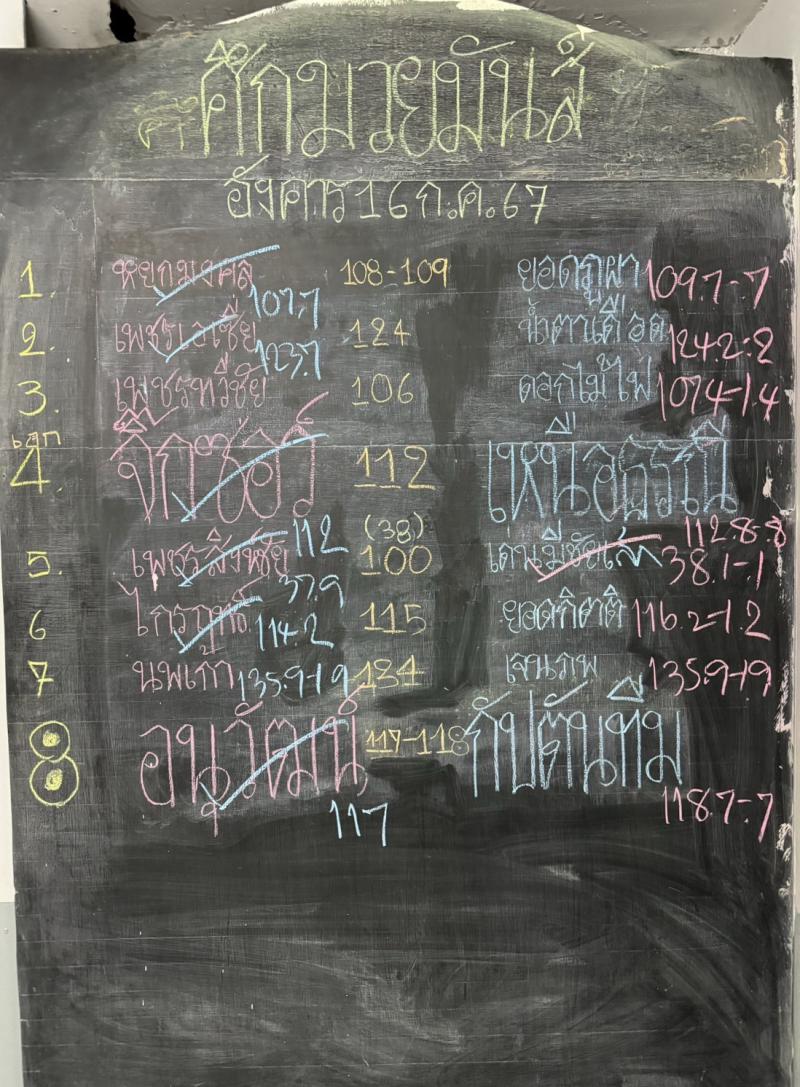 ศึกมวยมันส์
อังคาร 16 ก.ค. 67
1. หยกมงคล 108-109 ยอดภูผา 109.7-.7
107.7
2. เพชรเอเชีย 124 น้ำตาเดือด 124.2-.2
123.7
3. เพชรทวีชัย 106 ดอกไม้ไฟ 107.4-1.4
4. 112 เหนือธรณี
112 (38) 112.8-.8
5. เพชรสิงห์ชัย 100 เด่นมีชัยเล็ก 38.1-.1
37.9
6 ไกรฤกษ์ 115 ยอดกิตติ 116.2-1.2
114.2
7 นพเก้า 135.9-1.9 134 เจนภพ 135.9-1.9
8 อนุวัฒน์ 117-118 กัปตันทีม
117 118.7-.7